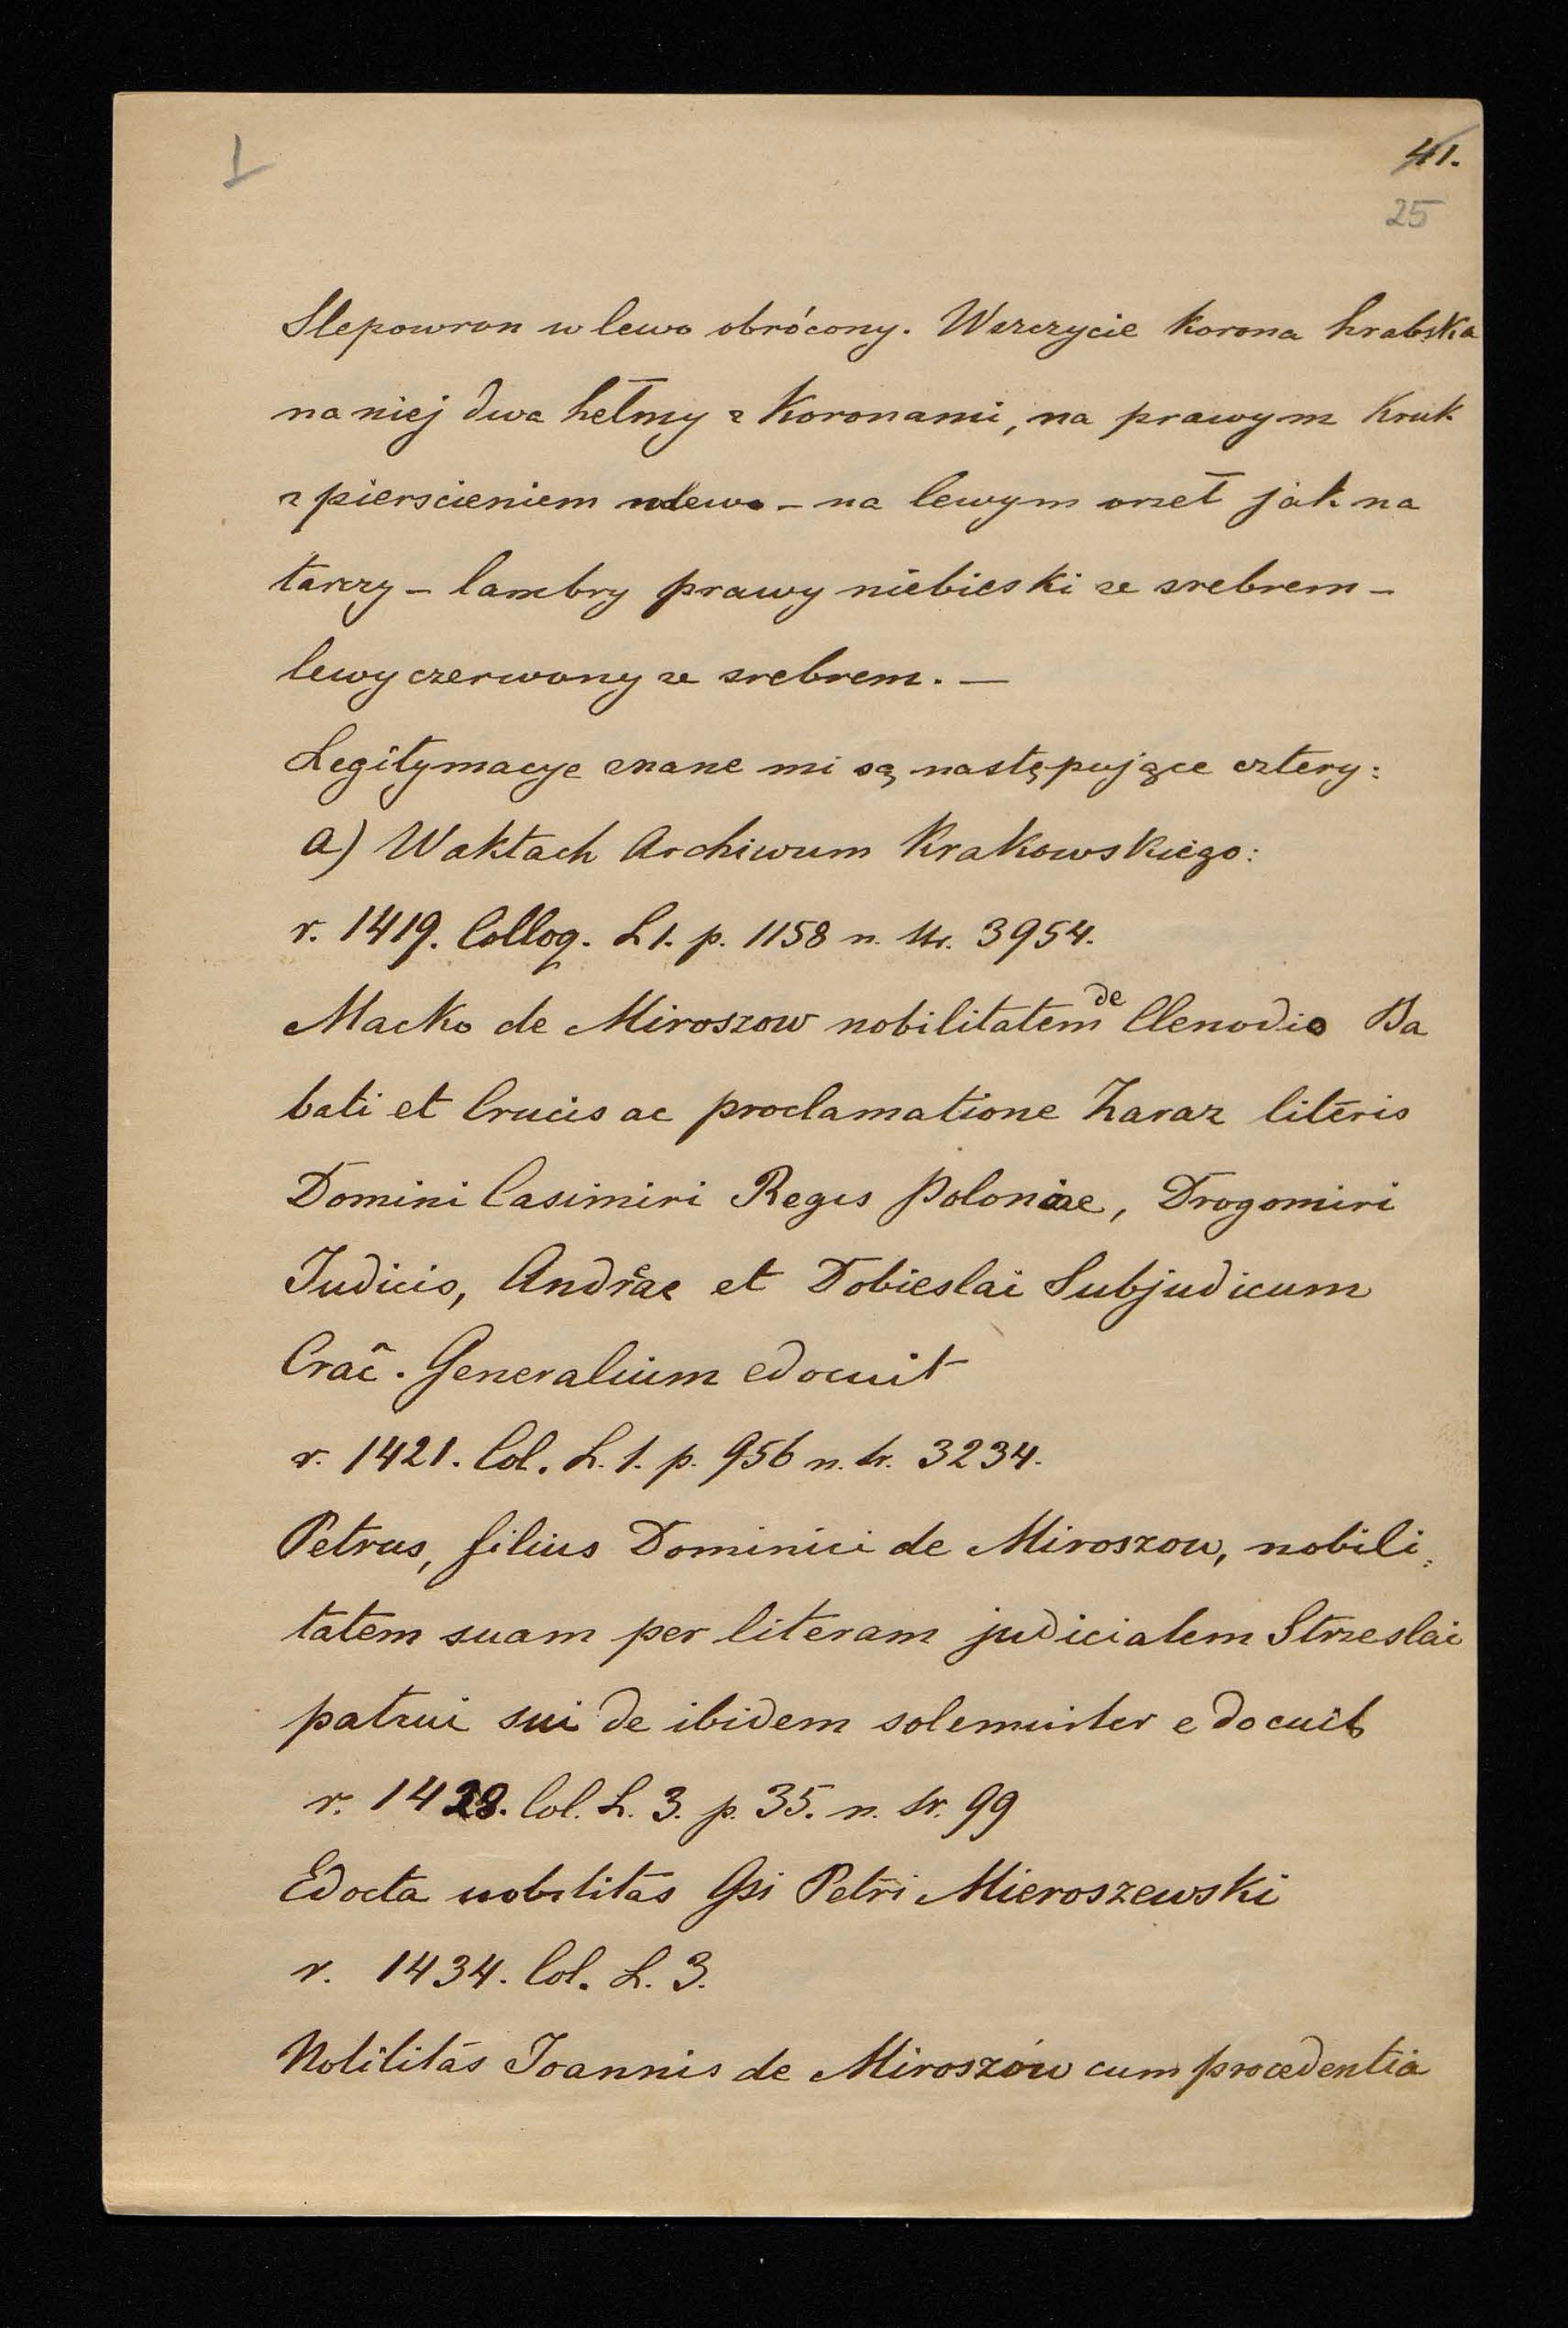 1
41.
25
Slepowron w lewo obrócony. W szczycie korona hrabska
na niej dwa hełmy z koronami, na prawym kruk
z pierscieniem w lewo – na lewym orzeł jak na
tarczy – lambry prawy niebieski ze srebrem –
lewy czerwony ze srebrem. —
Legitymacye znane mi są następujące cztery:
a) W aktach Archiwum Krakowskiego:
r. 1419. Colloq. L 1. p. 1158 n. str. 3954.
Macko de Miroszow nobilitatem de Clenodio Ba
bati et Crucis ac proclamatione Zaraz literis
Domini Casimiri Regis Poloniae, Drogomiri
Judicis, Andreae et Dobieslai Subjudicum
Crac̃. Generalium edocuit
r. 1421. Col. L. 1. p. 956 n. tr. 3234.
Petrus, filius Dominici de Miroszow, nobili=
tatem suam per literam judicialem Strzeslai
patrui sui de ibidem solemniter edocuit
r. 1428. Col. L. 3. p. 35. n. tr. 99
Edocta nobilitas Gsi Petri Mieroszewski
r. 1434. Col. L. 3.
Nobilitas Joannis de Miroszów cum procedentia